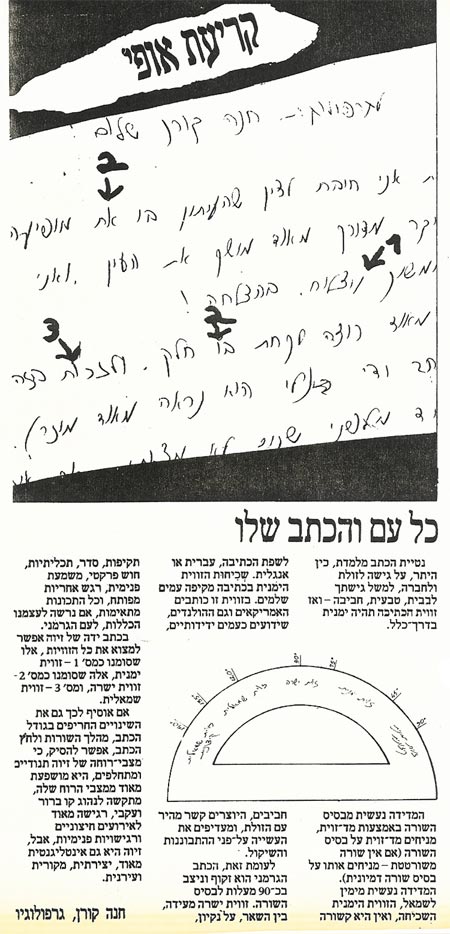 קריעת אופי
לגרפולוגית - חנה קורן שלום
2
ת אני חיבת לציין שהעיתון בו את מופיעה
יקר מדורך מאוד מושך את העין . ואני
1
נוצצות. בהצלחה !
2
3
מאוד רוצה לקחת בו חלק . ולזכות בזה
הוא נראה מאוד מוזר).
כל עם והכתב שלו
נטיית הכתב מלמדת, בין
היתר, על גישה לזולת
ולחברה, למשל גישתך
לבבית, טבעית, חביבה – ואז
זווית הכתיבה תהיה ימנית
בדרך־כלל.
המדידה נעשית מבסיס
השורה באמצעות מד־זוית,
מניחים מד־זוית על בסיס
השורה (אם אין שורה
משורטטת – מניחים אותו על
בסיס שורה דמיונית).
המדידה נעשית מימין
לשמאל, הזווית הימנית
השכיחה, ואין היא קשורה
לשפת הכתיבה, עברית או
אנגלית. שכיחות הזווית
הימנית בכתיבה מקיפה עמים
שלמים. בזווית זו כותבים
האמריקאים וגם ההולנדים,
שידועים כעמים ידידותיים,
90°
זוית ישרה
חביבים, היוצרים קשר מהיר
עם הזולת, ומעדיפים את
העשייה על־פני ההתבוננות
והשיקול.
לעומת זאת, הכתב
הגרמני הוא זקוף וניצב
בכ־90 מעלות לבסיס
השורה. זווית ישרה מעידה,
בין השאר, על נקיון,
תקיפות, סדר, תכליתיות,
חוש פרקטי, משמעת
פנימית, רגש אחריות
מפותח, וכל התכונות
מתאימות, אם נרשה לעצמנו
הכללות, לעם הגרמני.
בכתב ידה של זיוה אפשר
למצוא את כל הזוויות, אלו
שסומנו כמס' 1 – זווית
ימנית, אלה שסומנו כמס' 2-
זווית ישרה, ומס' 3 – זווית
שמאלית.
אם אוסיף לכך גם את
השינויים החריפים בגודל
הכתב, מהלך השורות ולחץ
הכתב, אפשר להסיק, כי
מצבי־רוחה של זיוה תנודייב
ומתחלפים, היא מושפעת
מאוד ממצבי הרוח שלה,
מתקשה לנהוג קו ברור
ועקבי, רגישה מאוד
לאירועים חיצוניים
ורגישויות פנימיות, אבל,
זיוה היא גם אינטליגנטית
מאוד, יצירתית, מקורית
ועירנית.
חנה קורן, גרפולוגיו